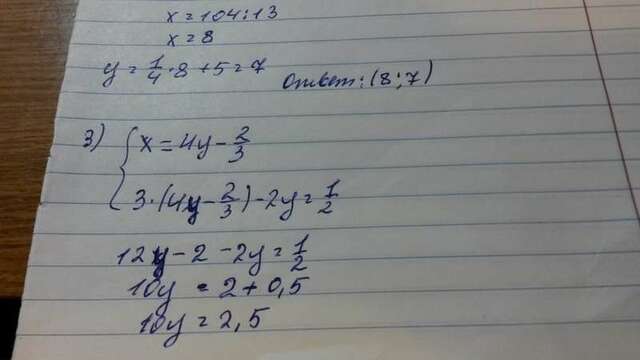 x = 104 : 13
x = 8
y = 1/4 · 8 + 5 = 7 Ответ: (8; 7)
3) { x = 4y - 2/3
3 · (4y - 2/3) - 2y = 1/2
12y - 2 - 2y = 1/2
10y = 2 + 0,5
10y = 2,5